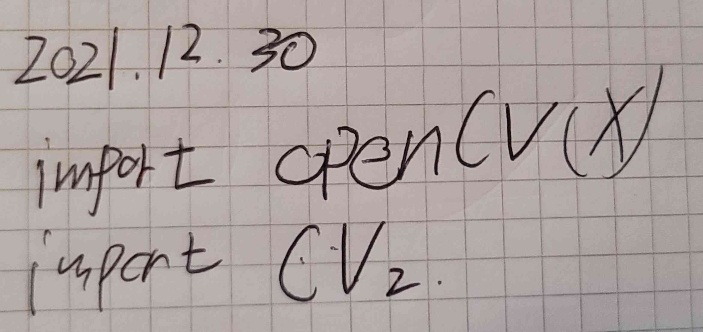 2021.12.30
import openCV(X)
import CV2.